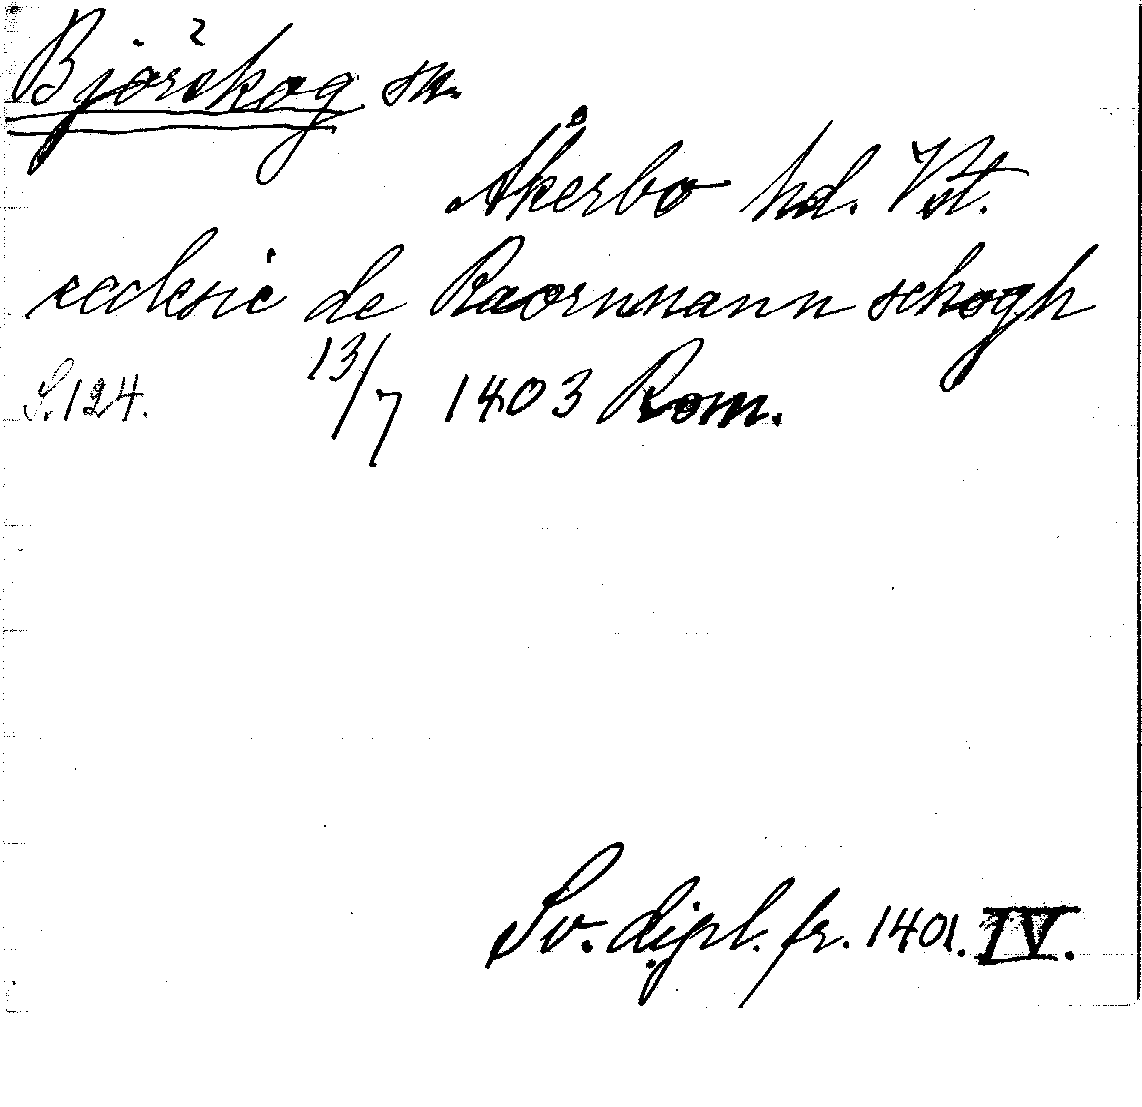 Björskog sn.
Åkerbo hd. Vst.
ecclesie de Baornmann schogh
S. 124. 13/7 1403 Rom.
Sv. dipl. fr. 1401. IV.